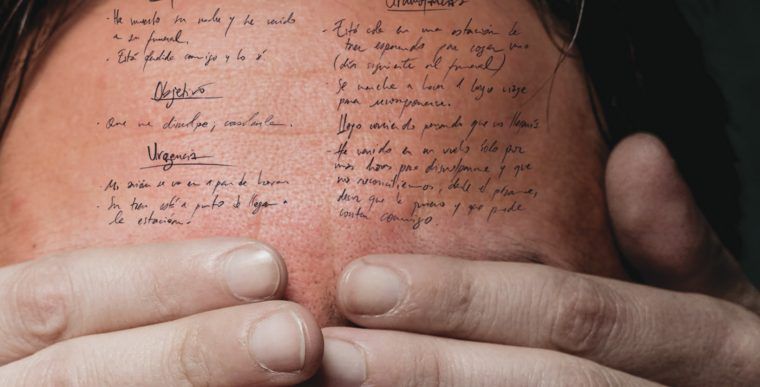 · Ha muerto su madre y he venido
a su funeral.
· Está conmigo y lo sé
Objetivo
· Que me disculpe, consolarla.
Urgencia
· Mi avión se va en par de horas
· Su tren está a punto de llegar a
la estación.
- Está sola en una estación de
tren esperando para coger uno
(día siguiente al funeral)
Se marcha a hacer 1 largo viaje
para recomponerse.
Llego corriendo pensando que no
- He venido en un vuelo solo por
unas horas para disculparme y que
nos reconciliemos, darle el pésame,
decir que la quiero y que puede
contar conmigo.